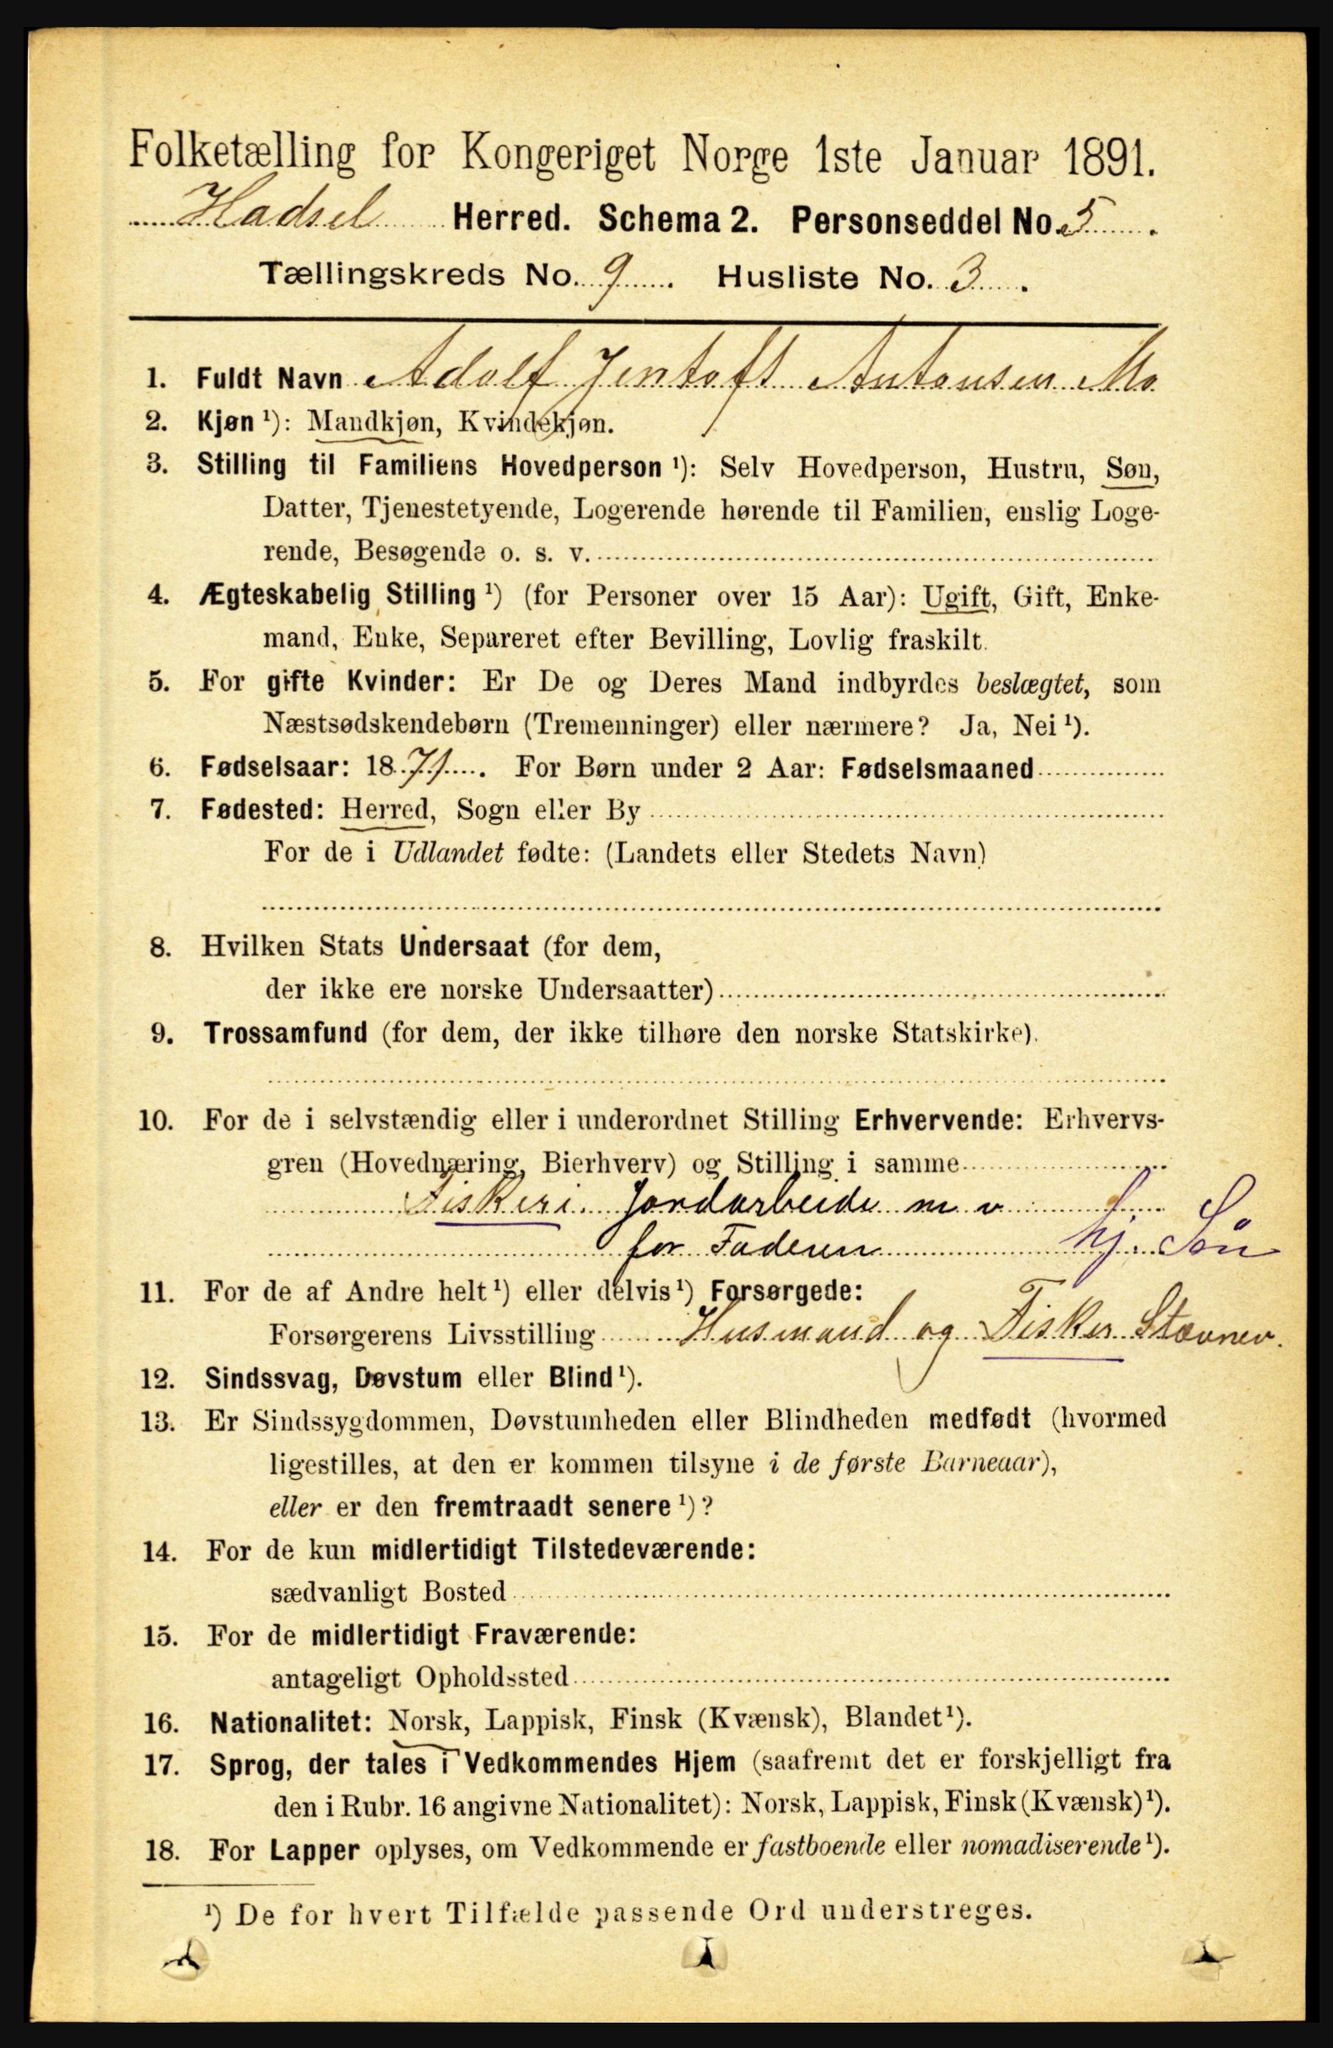 Folketælling for Kongeriget Norge 1ste Januar 1891.
Hadsel Herred. Schema 2. Personseddel No. 5.
Tællingskreds No. 9. Husliste No. 3.
1. Fuldt Navn Adolf Jentoft Antonsen Mo
2. Kjøn ¹): Mandkjøn, Kvindekjøn.
3. Stilling til Familiens Hovedperson ¹): Selv Hovedperson, Hustru, Søn,
Datter, Tjenestetyende, Logerende hørende til Familien, enslig Loge-
rende, Besøgende o. s. v.
4. Ægteskabelig Stilling ¹) (for Personer over 15 Aar): Ugift, Gift, Enke-
mand, Enke, Separeret efter Bevilling, Lovlig fraskilt.
5. For gifte Kvinder: Er De og Deres Mand indbyrdes beslægtet, som
Næstsødskendebørn (Tremenninger) eller nærmere? Ja, Nei ¹).
6. Fødselsaar: 1871. For Børn under 2 Aar: Fødselsmaaned
7. Fødested: Herred, Sogn eller By
For de i Udlandet fødte: (Landets eller Stedets Navn)
8. Hvilken Stats Undersaat (for dem,
der ikke ere norske Undersaatter)
9. Trossamfund (for dem, der ikke tilhøre den norske Statskirke).
10. For de i selvstændig eller i underordnet Stilling Erhvervende: Erhvervs-
gren (Hovednæring, Bierhverv) og Stilling i samme
Fiskeri Jordarbeide m v
for Faderen hj. Søn
11. For de af Andre helt ¹) eller delvis ¹) Forsørgede:
Forsørgerens Livsstilling Husmand og Fisker
12. Sindssvag, Døvstum eller Blind ¹).
13. Er Sindssygdommen, Døvstumheden eller Blindheden medfødt (hvormed
ligestilles, at den er kommen tilsyne i de første Barneaar),
eller er den fremtraadt senere ¹)?
14. For de kun midlertidigt Tilstedeværende:
sædvanligt Bosted
15. For de midlertidigt Fraværende:
antageligt Opholdssted
16. Nationalitet: Norsk, Lappisk, Finsk (Kvænsk), Blandet ¹).
17. Sprog, der tales i Vedkommendes Hjem (saafremt det er forskjelligt fra
den i Rubr. 16 angivne Nationalitet): Norsk, Lappisk, Finsk (Kvænsk) ¹).
18. For Lapper oplyses, om Vedkommende er fastboende eller nomadiserende ¹).
¹) De for hvert Tilfælde passende Ord understreges.